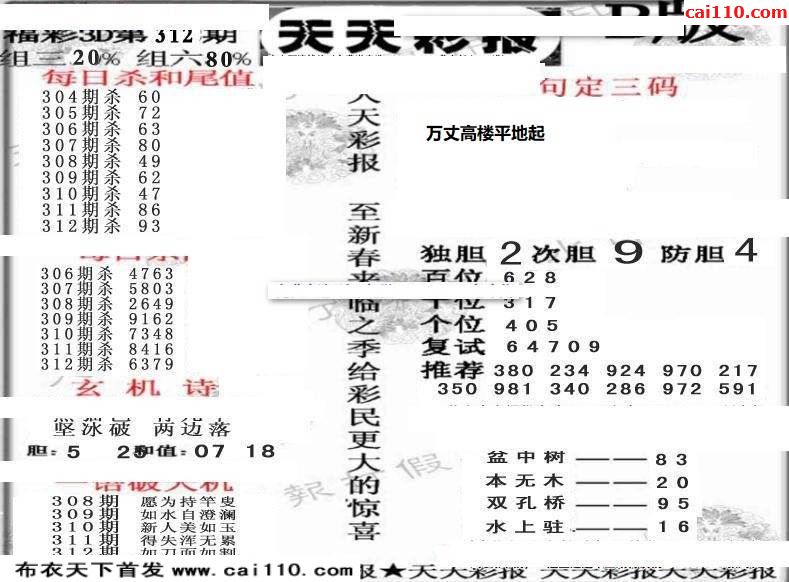 cai110.com
福彩3D第312期
天天彩报
B版
组三20% 组六80%
每日杀和尾值
304期杀 60
305期杀 72
306期杀 63
307期杀 80
308期杀 49
309期杀 62
310期杀 47
311期杀 86
312期杀 93
306期杀 4763
307期杀 5803
308期杀 2649
309期杀 9162
310期杀 7348
311期杀 8416
312期杀 6379
玄机诗
坚冰破 两边落
胆:5 25和值:07 18
一语破天机
308期 愿为持竿叟
309期 如水自澄澜
310期 新人美如玉
311期 得失浑无累
312期 如刀面如割
天彩报
至新春来临之季给彩民更大的惊喜
句定三码
万丈高楼平地起
独胆2次胆9防胆4
百位 628
十位 317
个位 405
复试 64709
推荐 380 234 924 970 217
350 981 340 286 972 591
盆中树——83
本无木——20
双孔桥——95
水上驻——16
報 假
布衣天下首发 www.cai110.com 报★天天彩报 天天彩报天天彩报